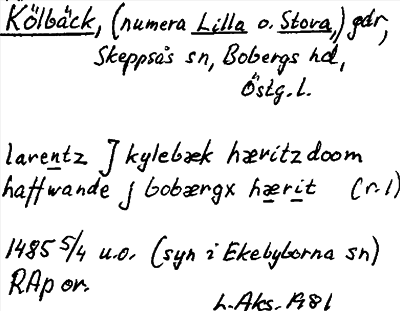 Kölbäck, (numera Lilla o. Stora,) gdr,
Skeppsås sn, Bobergs hd,
Östg. l.
larentz J kylebæk hæritzdoom
haffwande j bobærgx hærit (r. 1)
1485 5/4 u.o. (syn i Ekebyborna sn)
RAp or.
L. Aks. 1981